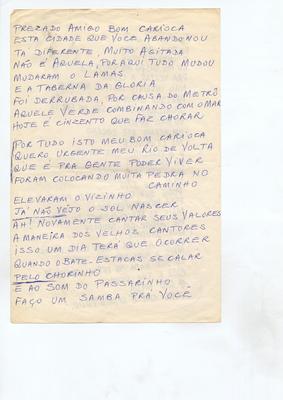 PREZADO AMIGO BOM CARIOCA
ESTA CIDADE QUE VOCÊ ABANDONOU
TA DIFERENTE, MUITO AGITADA
NÃO É AQUELA, POR AQUI TUDO MUDOU
MUDARAM O LAMAS
E A TABERNA DA GLORIA
FOI DERRUBADA, POR CAUSA DO METRÔ
AQUELE VERDE COMBINANDO COM O MAR
HOJE É CINZENTO QUE FAZ CHORAR
POR TUDO ISTO MEU BOM CARIOCA
QUERO URGENTE MEU RIO DE VOLTA
QUE É PRA GENTE PODER VIVER
FORAM COLOCANDO MUITA PEDRA NO
CAMINHO
ELEVARAM O VIZINHO
JÁ NÃO VEJO O SOL NASCER
AH! NOVAMENTE CANTAR SEUS VALORES
A MANEIRA DOS VELHOS CANTORES
ISSO UM DIA TERÁ QUE OCORRER
QUANDO O BATE-ESTACAS SE CALAR
PELO CHORINHO
E AO SOM DO PASSARINHO
FAÇO UM SAMBA PRÁ VOCÊ